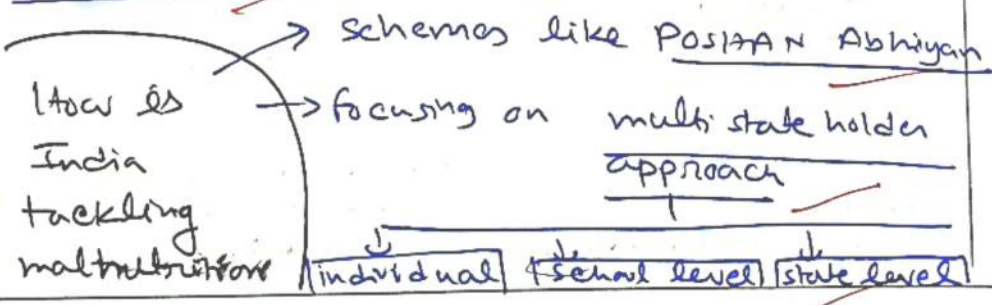 How is
India
tackling
malnutrition
→ schemes like POSHAN Abhiyan
→ focusing on multi stake holder
approach
individual school level state level